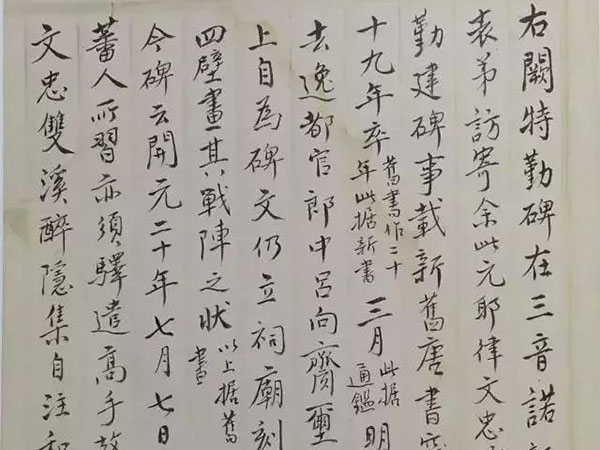 右闕特勤碑在三音諾
表弟訪寄余此元耶律文忠
勤建碑事載新舊唐書
十九年卒舊書作二十年此据新書三月此据通鑑明
去逸都官郎中呂向齎璽
上自為碑文仍立祠廟刻
四壁畫其戰陣之狀以上据舊書
今碑云開元二十年七月七日
蕃人所習亦須驛遣高手
文忠雙溪醉隱集自注和